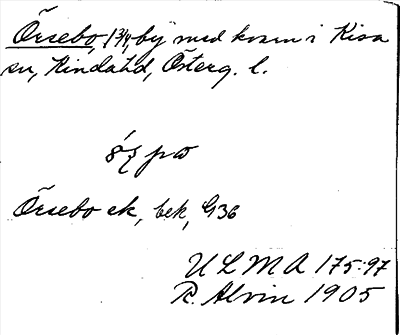 Örsebo, 1 3/4, by med kvarn i Kisa
sn, Kinda hd, Österg. l.
Örsebo ek, bek, G36
ULMA 175:97
R. Alvin 1905